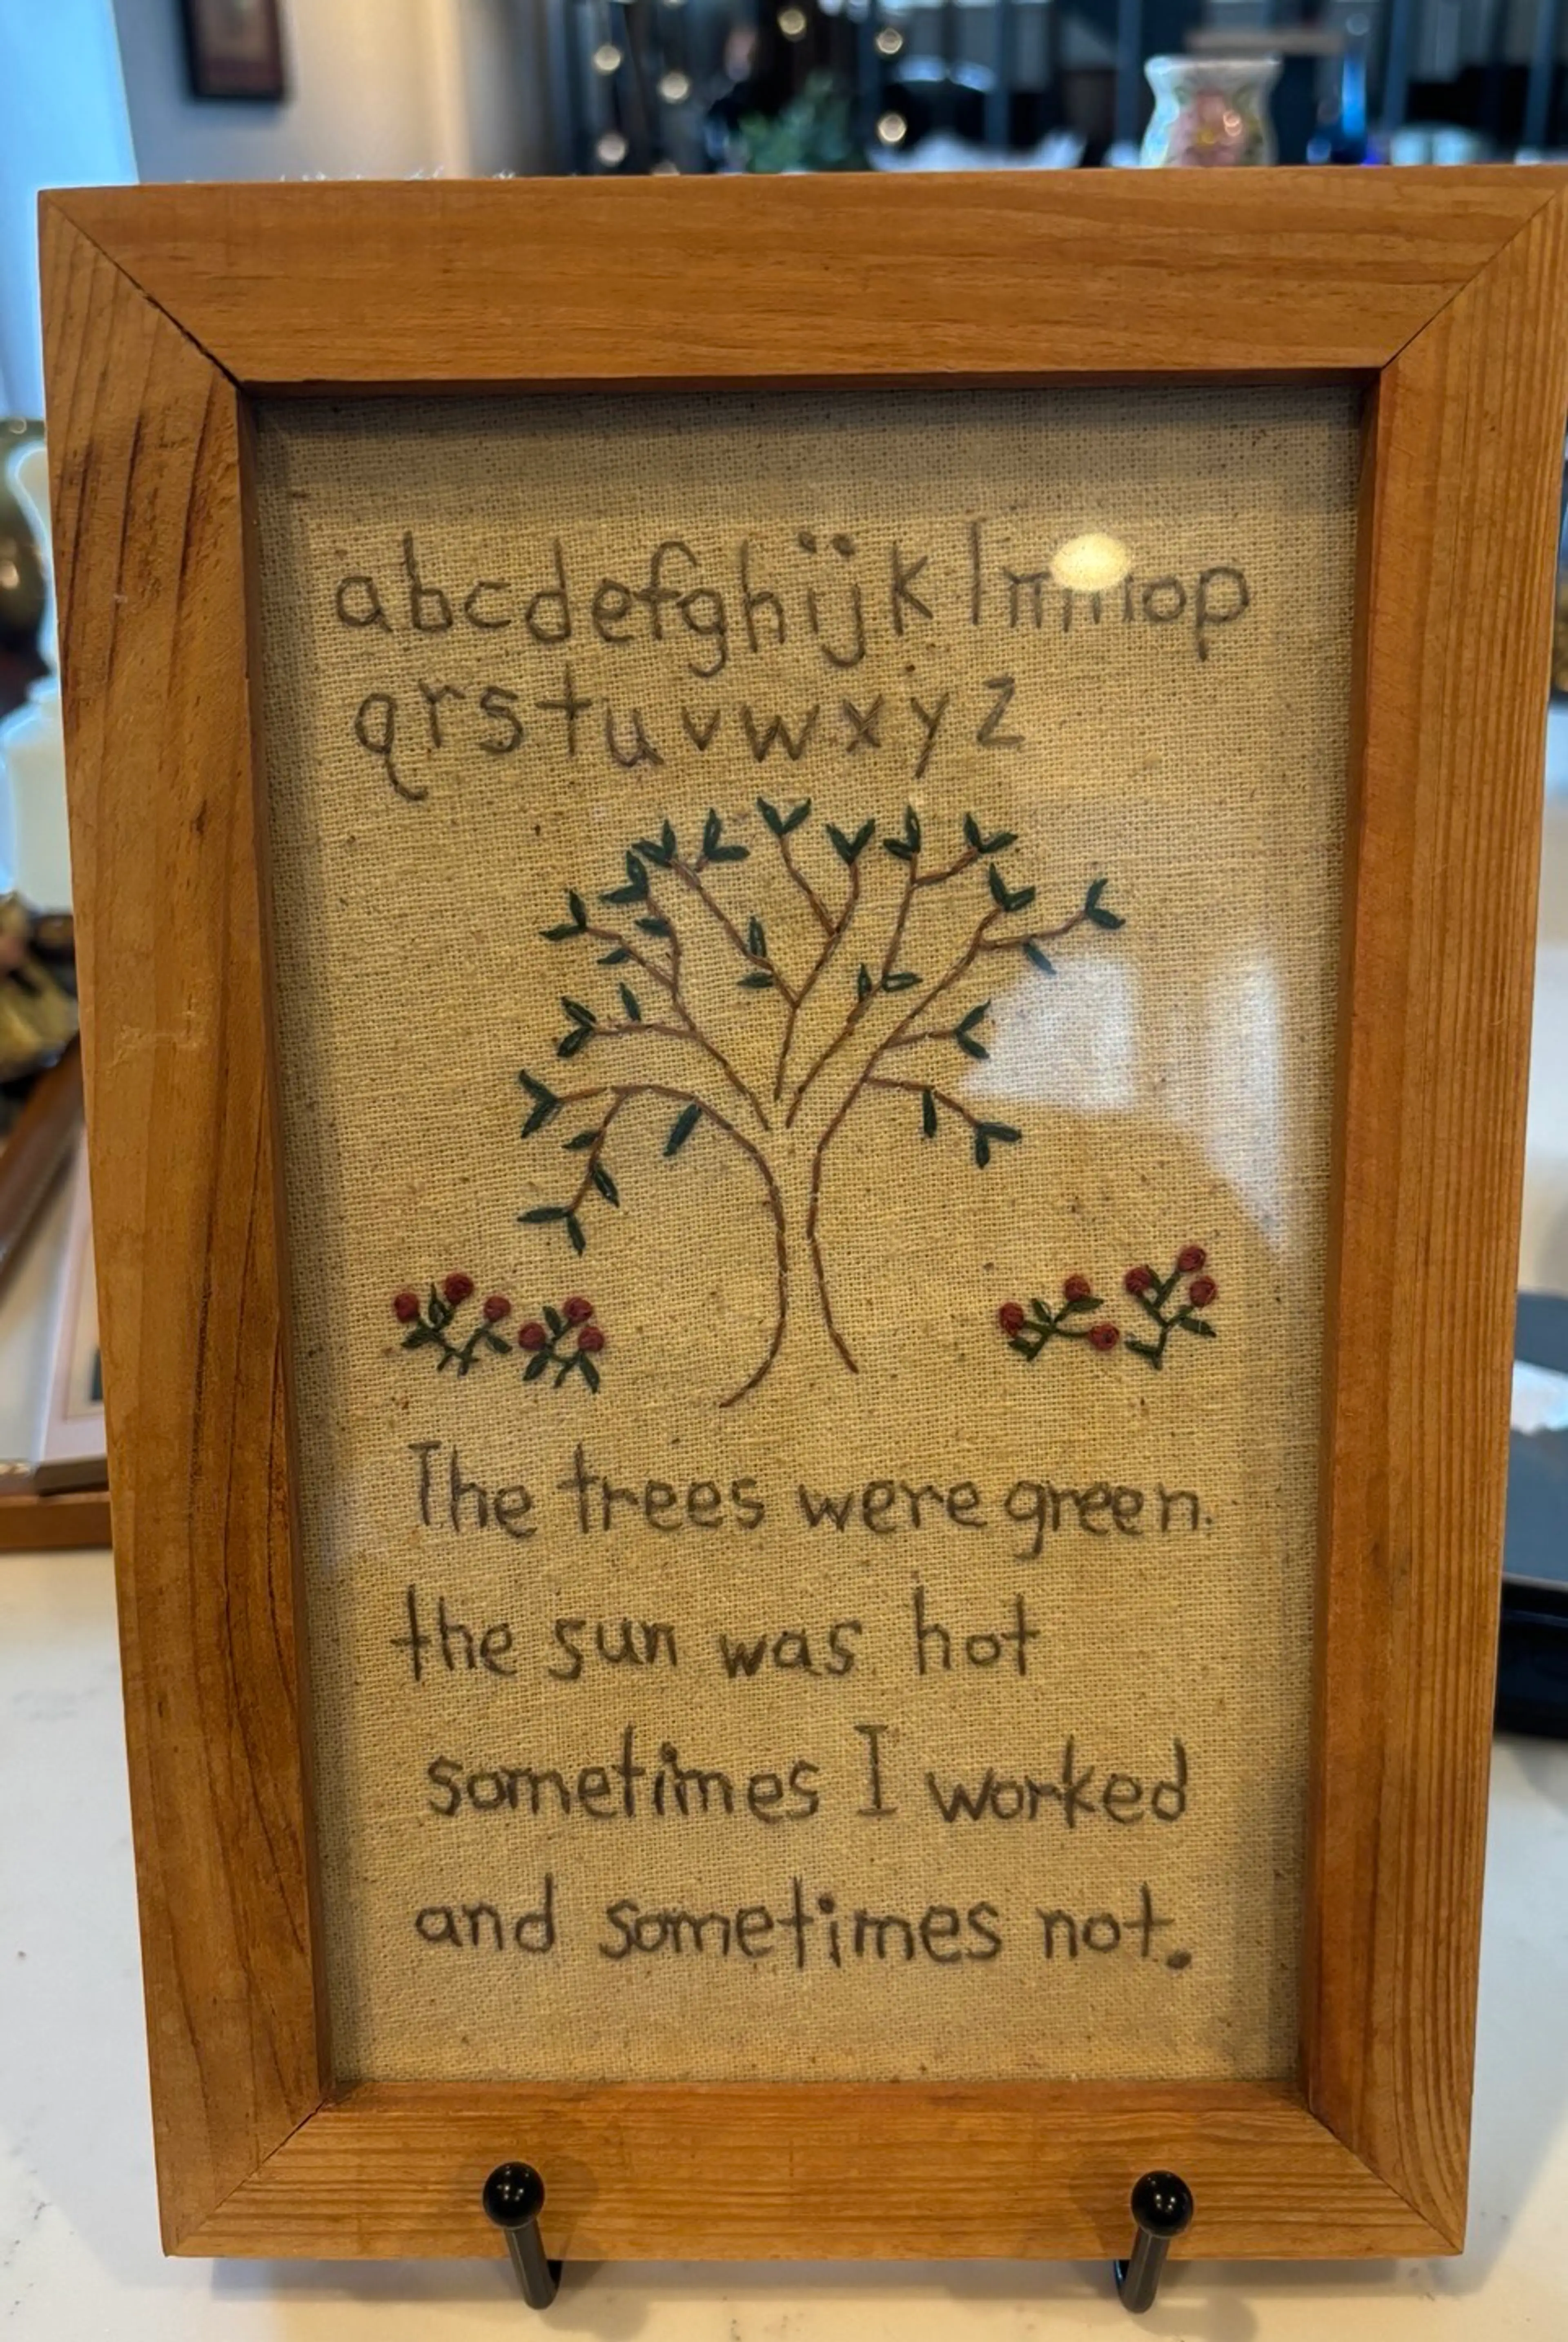 abcdefghijklmnop
qrstuvwxyz
The trees were green.
the sun was hot
sometimes I worked
and sometimes not.